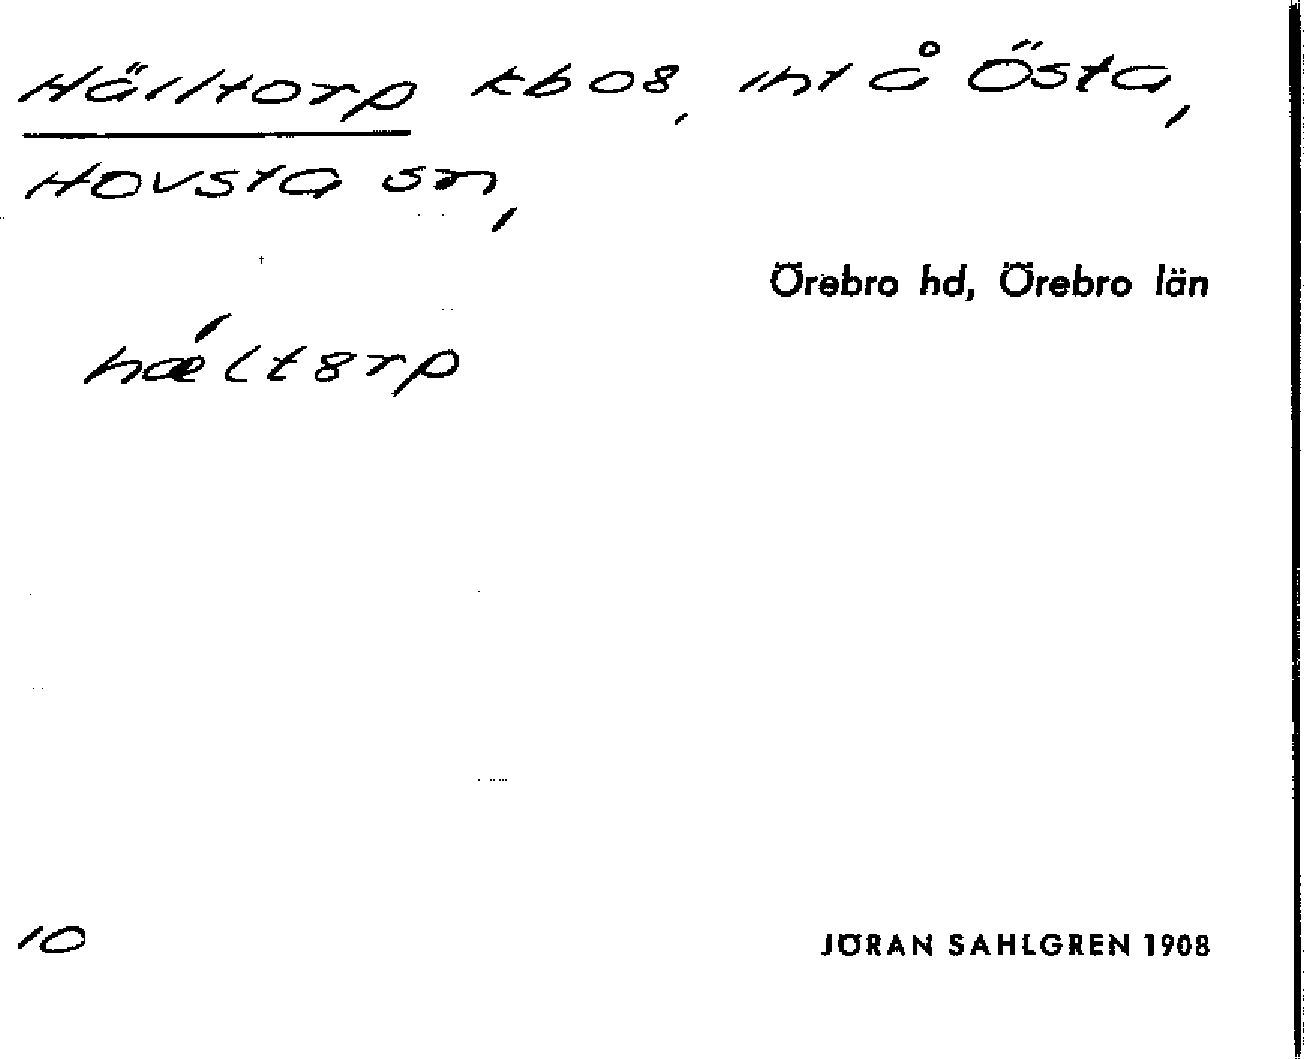 Hälltorp kb 08, int å Östa,
Hovsta sn,
Örebro hd, Örebro län
hæ´lt8rp
10
JÖRAN SAHLGREN 1908